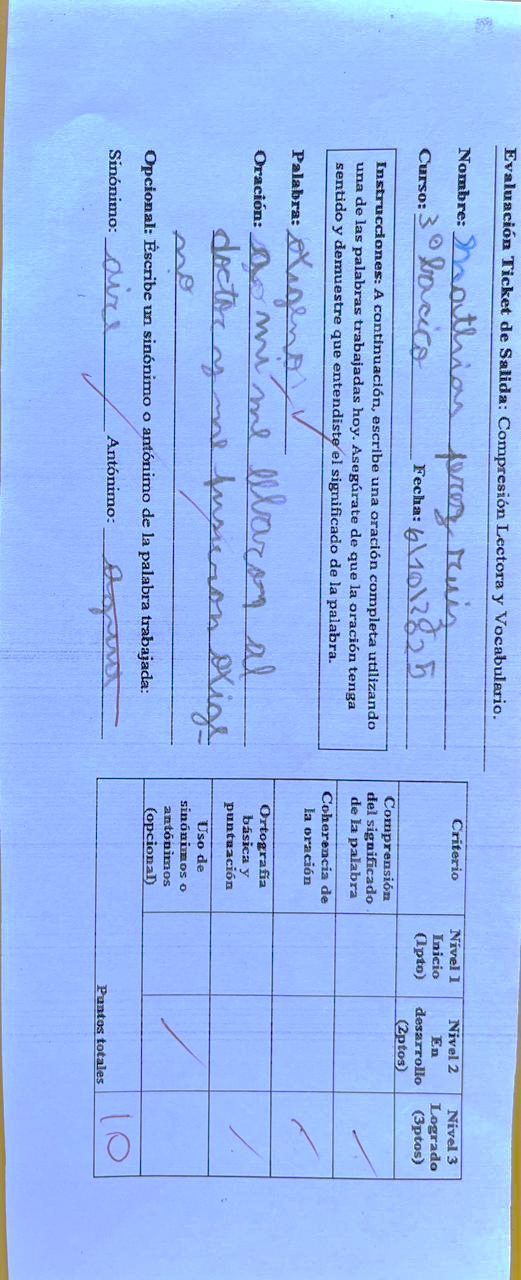 Evaluación Ticket de Salida: Compresión Lectora y Vocabulario.
Nombre: Maithias perez ruis
Curso: 3º bacico Fecha: 6/10/2025
Instrucciones: A continuación, escribe una oración completa utilizando
una de las palabras trabajadas hoy. Asegúrate de que la oración tenga
sentido y demuestre que entendiste el significado de la palabra.
Palabra: oxigenio
Oración: a mi me llbaron al
doctor y me pusieron oxige-
nio
Opcional: Escribe un sinónimo o antónimo de la palabra trabajada:
Sinónimo: aire Antónimo:
Criterio
Nivel 1
Inicio
(1pto)
Nivel 2
En
desarrollo
(2ptos)
Nivel 3
Logrado
(3ptos)
Comprensión
del significado
de la palabra
Coherencia de
la oración
Ortografía
básica y
puntuación
Uso de
sinónimos o
antónimos
(opcional)
Puntos totales 10